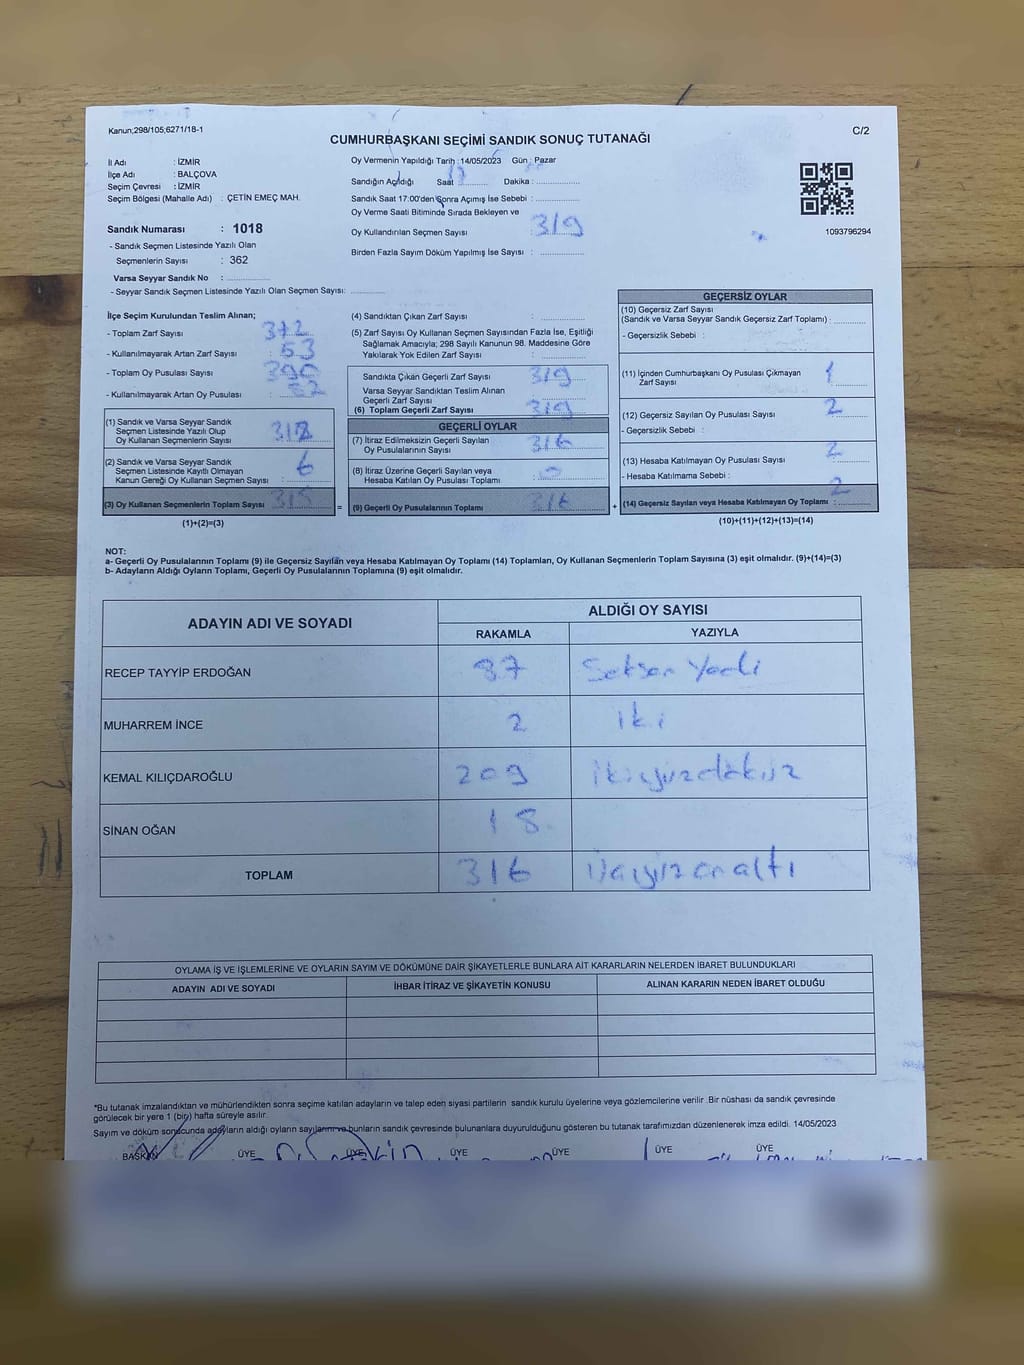 Kanun;298/105;6271/18-1
C/2
CUMHURBAŞKANI SEÇİMİ SANDIK SONUÇ TUTANAĞI
İl Adı : İZMİR
İlçe Adı : BALÇOVA
Seçim Çevresi : İZMİR
Seçim Bölgesi (Mahalle Adı) : ÇETİN EMEÇ MAH.
Sandık Numarası : 1018
- Sandık Seçmen Listesinde Yazılı Olan
Seçmenlerin Sayısı : 362
Varsa Seyyar Sandık No :
- Seyyar Sandık Seçmen Listesinde Yazılı Olan Seçmen Sayısı:
Oy Vermenin Yapıldığı Tarih :14/05/2023 Gün : Pazar
Sandığın Açıldığı Saat Dakika :
Sandık Saat 17:00'den Sonra Açımış İse Sebebi :
Oy Verme Saati Bitiminde Sırada Bekleyen ve
Oy Kullandırılan Seçmen Sayısı : 319
Birden Fazla Sayım Döküm Yapılmış İse Sayısı :
1093796294
İlçe Seçim Kurulundan Teslim Alınan;
- Toplam Zarf Sayısı : 372
- Kullanılmayarak Artan Zarf Sayısı : 53
- Toplam Oy Pusulası Sayısı :
- Kullanılmayarak Artan Oy Pusulası :
(1) Sandık ve Varsa Seyyar Sandık
Seçmen Listesinde Yazılı Olup
Oy Kullanan Seçmenlerin Sayısı :
(2) Sandık ve Varsa Seyyar Sandık
Seçmen Listesinde Kayıtlı Olmayan
Kanun Gereği Oy Kullanan Seçmen Sayısı : 6
(3) Oy Kullanan Seçmenlerin Toplam Sayısı :
(1)+(2)=(3)
(4) Sandıktan Çıkan Zarf Sayısı :
(5) Zarf Sayısı Oy Kullanan Seçmen Sayısından Fazla İse, Eşitliği
Sağlamak Amacıyla; 298 Sayılı Kanunun 98. Maddesine Göre
Yakılarak Yok Edilen Zarf Sayısı :
Sandıkta Çıkan Geçerli Zarf Sayısı : 319
Varsa Seyyar Sandıktan Teslim Alınan
Geçerli Zarf Sayısı :
(6) Toplam Geçerli Zarf Sayısı : 319
GEÇERLİ OYLAR
(7) İtiraz Edilmeksizin Geçerli Sayılan
Oy Pusulalarının Sayısı : 316
(8) İtiraz Üzerine Geçerli Sayılan veya
Hesaba Katılan Oy Pusulası Toplamı :
(9) Geçerli Oy Pusulalarının Toplamı : 316
GEÇERSİZ OYLAR
(10) Geçersiz Zarf Sayısı
(Sandık ve Varsa Seyyar Sandık Geçersiz Zarf Toplamı) :
- Geçersizlik Sebebi :
(11) İçinden Cumhurbaşkanı Oy Pusulası Çıkmayan
Zarf Sayısı : 1
(12) Geçersiz Sayılan Oy Pusulası Sayısı : 2
- Geçersizlik Sebebi :
(13) Hesaba Katılmayan Oy Pusulası Sayısı : 2
- Hesaba Katılmama Sebebi :
(14) Geçersiz Sayılan veya Hesaba Katılmayan Oy Toplamı : 2
(10)+(11)+(12)+(13)=(14)
NOT:
a- Geçerli Oy Pusulalarının Toplamı (9) ile Geçersiz Sayılan veya Hesaba Katılmayan Oy Toplamı (14) Toplamları, Oy Kullanan Seçmenlerin Toplam Sayısına (3) eşit olmalıdır. (9)+(14)=(3)
b- Adayların Aldığı Oyların Toplamı, Geçerli Oy Pusulalarının Toplamına (9) eşit olmalıdır.
ADAYIN ADI VE SOYADI ALDIĞI OY SAYISI
RAKAMLA YAZIYLA
RECEP TAYYİP ERDOĞAN 87 Seksen Yedi
MUHARREM İNCE 2 iki
KEMAL KILIÇDAROĞLU 209 ikiyüzdokuz
SİNAN OĞAN 18
TOPLAM 316 Üçyüzonaltı
OYLAMA İŞ VE İŞLEMLERİNE VE OYLARIN SAYIM VE DÖKÜMÜNE DAİR ŞİKAYETLERLE BUNLARA AİT KARARLARIN NELERDEN İBARET BULUNDUKLARI
ADAYIN ADI VE SOYADI İHBAR İTİRAZ VE ŞİKAYETİN KONUSU ALINAN KARARIN NEDEN İBARET OLDUĞU
*Bu tutanak imzalandıktan ve mühürlendikten sonra seçime katılan adayların ve talep eden siyasi partilerin sandık kurulu üyelerine veya gözlemcilerine verilir .Bir nüshası da sandık çevresinde
görülecek bir yere 1 (bir) hafta süreyle asılır.
Sayım ve döküm sonucunda adayların aldığı oyların sayılarını ve bunların sandık çevresinde bulunanlara duyurulduğunu gösteren bu tutanak tarafımızdan düzenlenerek imza edildi. 14/05/2023
BAŞKAN ÜYE ÜYE ÜYE ÜYE ÜYE ÜYE